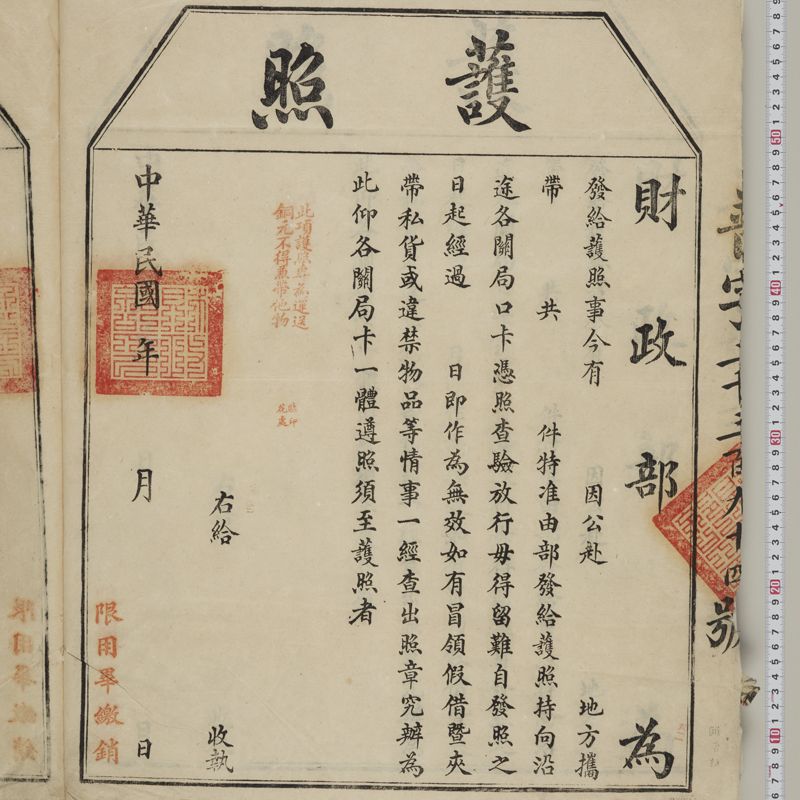 護照
財政部為
發給護照事今有 因公赴 地方攜
帶 共 件特准由部發給護照持向沿
途各關局口卡憑照查驗放行毋得留難自發照之
日起經過 日即作為無效如有冒領假借暨夾
帶私貨或違禁物品等情事一經查出照章究辦為
此仰各關局卡一體遵照須至護照者
此項護照專為運送
銅元不得兼帶他物
右給 收執
中華民國 年 月 日
限用畢繳銷
字 千三百八十四號